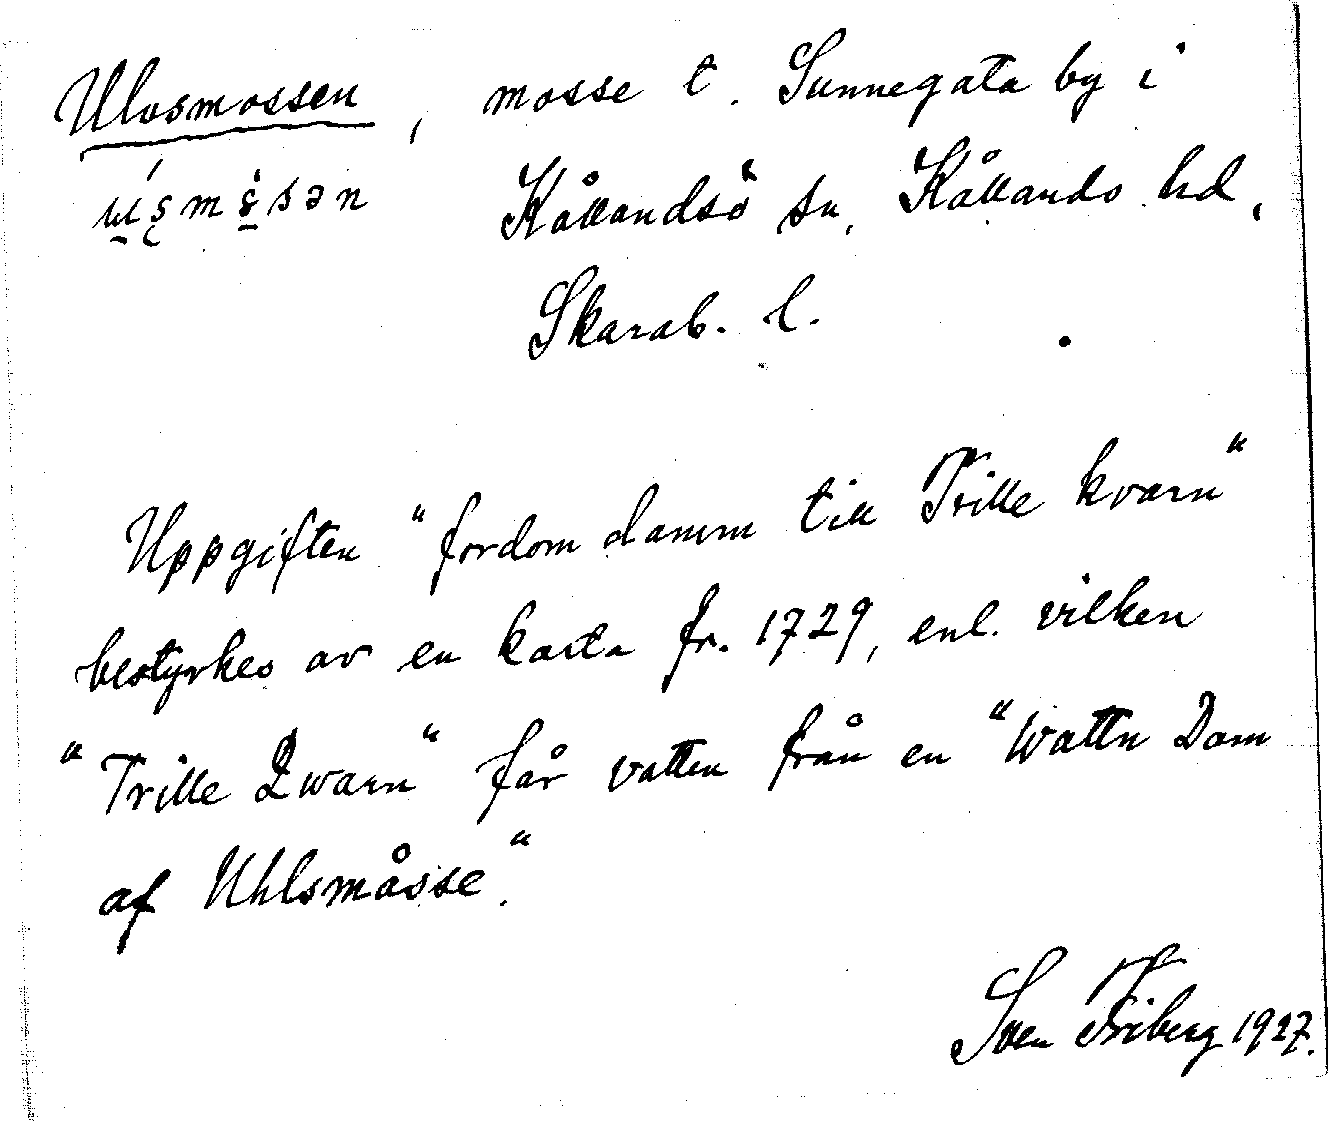 Ulosmossen, mosse t. Sunnegata by i
Kållandsö sn, Kållands hd,
Skarab. l.
Uppgiften "fordom damm till Trille kvarn"
bestyrkes av en karta fr. 1729, enl. vilken
"Trille Qwarn" får vatten från en "Wattn Dam
af Uhlsmåsse".
Sven Friberg 1927.